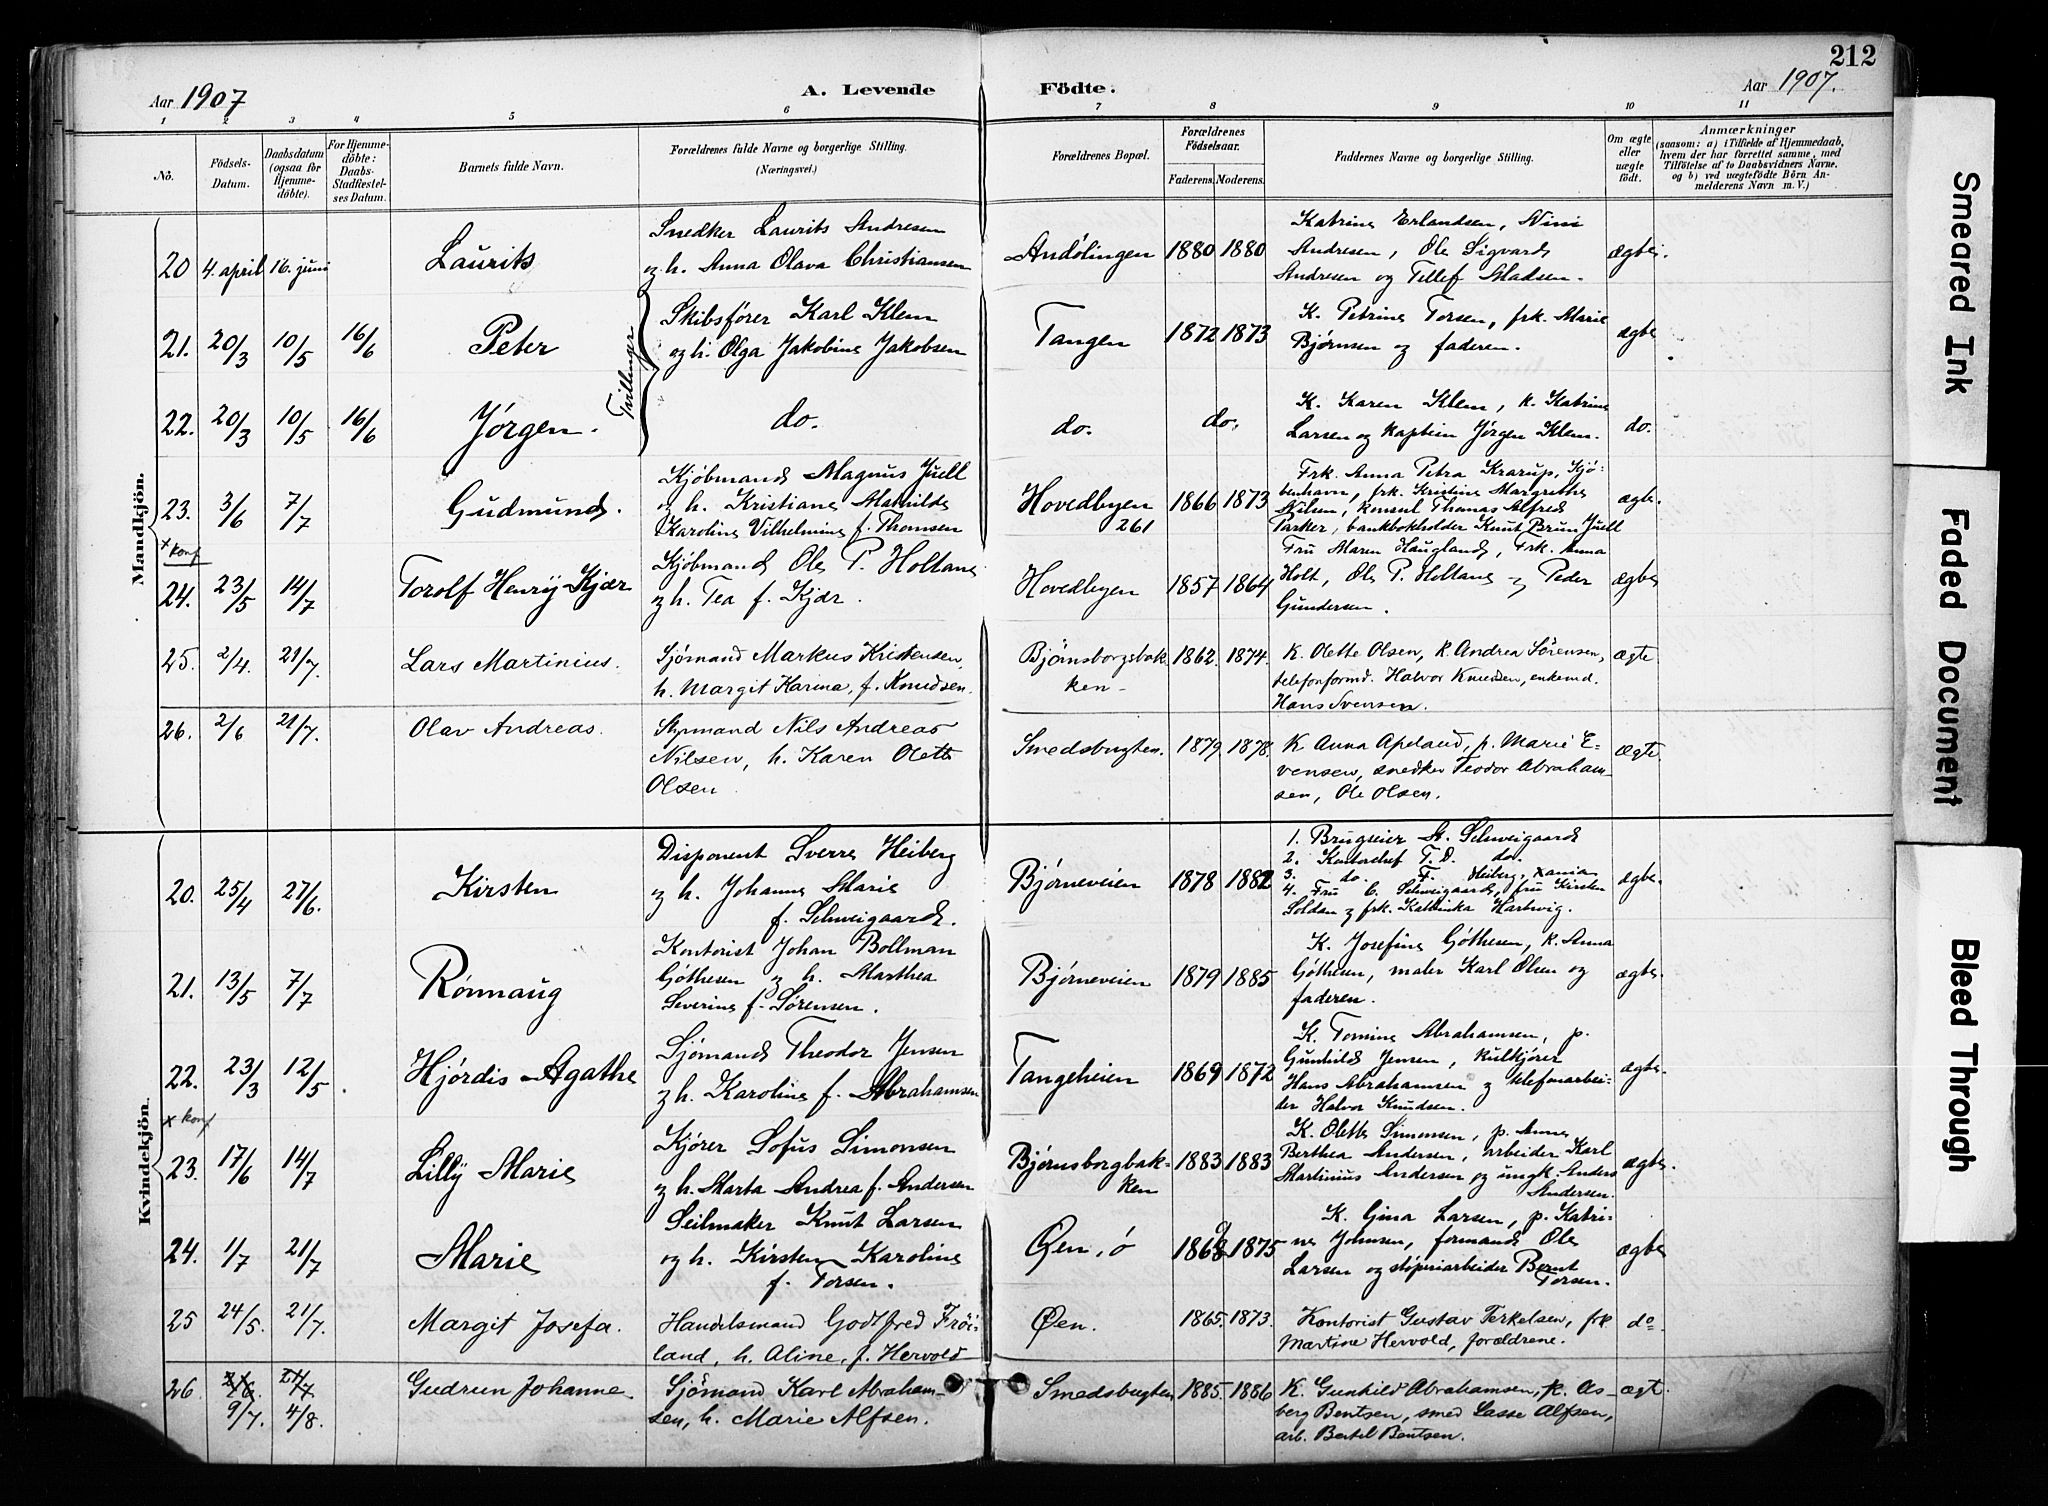 212
Aar 1907
A. Levende
Födte.
Aar 1907.
1 2 3 4 5 6 7 8 9 10 11
No.
Födsels-Datum.
Daabsdatum (ogsaa for Hjemmedöbte).
For Hjemmedöbte: Daabs-Stadfæstelses Datum.
Barnets fulde Navn.
Forældrenes fulde Navne og borgerlige Stilling.
(Næringsvei.)
Forældrenes Bopæl.
Forældrenes Födselsaar.
Faderens. Moderens.
Faddernes Navne og borgerlige Stilling.
Om ægte eller uægte födt.
Anmærkninger
(saasom: a) i Tilfælde af Hjemmedaab, hvem der har forrettet samme, med Tilföielse af to Daabsvidners Navne. og b) ved uægtefödte Börn Anmelderens Navn m. V.)
Mandkjön.
20 4. april 16. juni Laurits
Snedker Laurits Andresen
og h. Anna Olava Christiansen
Andölingen 1880 1880
Katrine Erlandsen, Nini
Andresen, Ole Sigvard
Andresen og Tellef Madsen.
ægte.
21. 20/3 10/5 16/6 Peter
Tvillinger
Skibsfører Karl Klem
og h. Olga Jakobine Jakobsen
Tangen 1872 1873
K. Petrine Torsen, frk. Marie
Bjørnsen og faderen.
ægte
22. 20/3 10/5 16/6 Jørgen.
do. do. do.
K. Karen Klem, k. Katrine
Larsen og kaptein Jørgen Klem.
do.
23. 3/6 7/7 Gudmund.
Kjøbmand Magnus Juell
og h. Kristiane Mathilde
Karoline Vilhelmine f. Thomsen
Hovedbyen
261
1866 1873
Frk. Anna Petra Krarup, Kjø-
benhavn, frk. Kristine Margrethe
Nilsen, konsul Thomas Alfred
Parker, bankbokholder Knut Brun Juell
ægte.
x konf
24. 23/5 14/7 Torolf Henry Kjær
Kjøbmand Ole P. Holtane
og h. Tea f. Kjær.
Hovedbyen 1857 1864
Fru Maren Haugland, Frk. Anna
Holt, Ole P. Holtane og Peder
Gundersen.
ægte
25. 2/4. 21/7. Lars Martinius.
Sjømand Markus Kristensen,
h. Margit Karina, f. Knudsen.
Bjørnsborgsbak-
ken-
1862. 1874.
K. Olette Olsen, k. Andrea Sørensen,
telefonformd. Halvor Knudsen, enkemd.
Hans Svensen.
ægte
26. 2/6 21/7. Olav Andreas.
Styrmand Nils Andreas
Nilsen, h. Karen Olette
Olsen
Smedsbugten. 1879 1878.
K. Anna Apeland, p. Marie E-
vensen, snedker Teodor Abraham-
sen, Ole Olsen.
ægte.
Kvindekjön.
20. 25/4 27/6. Kirsten
Disponent Sverre Heiberg
og h. Johanne Marie
f. Schweigaard.
Bjørneveien 1878 1882
1. Brugseier St. Schweigaard
2. Kontorchef T. D. do.
3. do. F. Heiberg, Xania
4. Fru C. Schweigaard, fru Kirsten
Soldan og frk. Kathinka Hartvig.
ægte.
21. 13/5 7/7 Rønnaug
Kontorist Johan Bollman
Gøthesen og h. Marthea
Severine f. Sørensen.
Bjørneveien 1879 1885
K. Josefine Gøthesen, k. Anna
Gøthesen, maler Karl Olsen og
faderen.
ægte.
22. 23/3 12/5 Hjørdis Agathe
Sjømand Theodor Jensen
og h. Karoline f. Abrahamsen
Tangeheien 1869 1872
K. Tomine Abrahamsen, p.
Gunhild Jensen, kulkjører
Hans Abrahamsen og telefonarbei-
der Halvor Knudsen.
ægte.
x konf
23. 17/6 14/7 Lilly Marie
Kjører Sofus Simonsen
og h. Marta Andrea f. Andersen
Bjørnsborgbak-
ken
1883 1883
K. Olette Simonsen, p. Anne
Berthea Andersen, arbeider Karl
Martinius Andersen og ungk. Anders
Andersen.
ægte.
24. 1/7 21/7 Marie
Seilmaker Knut Larsen
og h. Kirsten Karoline
f. Torsen.
Øen, ø 1868 1875
K. Gina Larsen, p. Katri-
ne Johnsen, formand Ole
Larsen og støperiarbeider Bernt
Torsen.
ægte
25 24/5. 21/7. Margit Josefa.
Handelsmand Godtfred Frøi-
land, h. Aline, f. Hervold
Øen. 1865. 1873.
Kontorist Gustav Terkelsen, frk
Martine Hervold, forældrene.
do
26. 9/7. 4/8. Gudrun Johanne.
Sjømand Karl Abraham-
sen, h. Marie Alfsen.
Smedsbugten 1885. 1886
K. Gunhild Abrahamsen, k. As-
berg Bentsen, smed Lasse Alfsen,
arb. Bertel Bentsen.
ægt.
Smeared Ink
Faded Document
Bleed Through